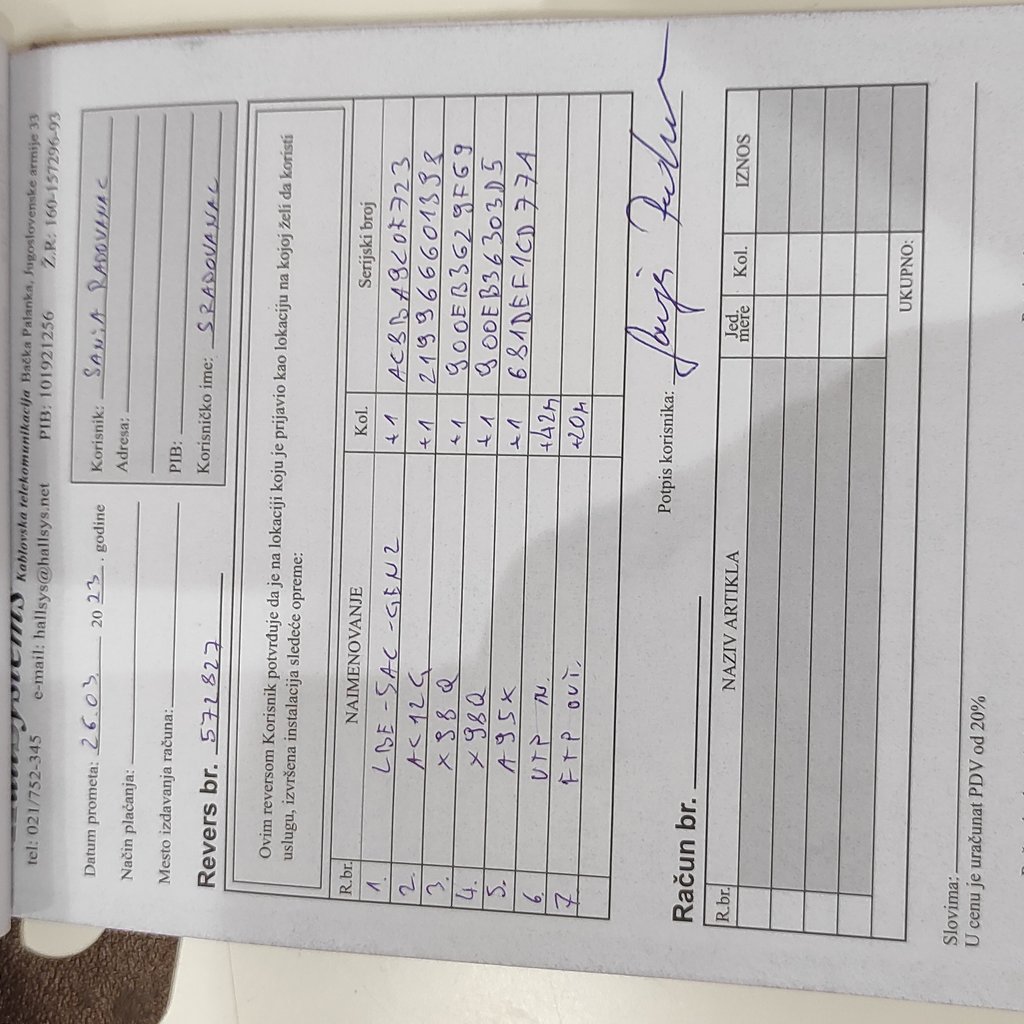 Kablovska telekomunikacija Bačka Palanka, Jugoslovenske armije 33
tel: 021/752-345 e-mail: hallsys@hallsys.net PIB: 101921256 Ž.R.: 160-157296-93
Datum prometa: 26.03. 2023. godine
Način plaćanja:
Mesto izdavanja računa:
Revers br. 572827
Korisnik: SANJA RADOVANAC
Adresa:
PIB:
Korisničko ime: SRADOVANAC
Ovim reversom Korisnik potvrđuje da je na lokaciji koju je prijavio kao lokaciju na kojoj želi da koristi
uslugu, izvršena instalacija sledeće opreme:
R.br. NAIMENOVANJE Kol. Serijski broj
1. LBE-5AC-GEN2 +1
2. AC12G +1
3. X98Q +1 900EB3629F69
4. X98Q +1 900EB36303D5
5. A95X +1 681DEF1CD771
6. UTP +42m
7 FTP +20m
Potpis korisnika:
Račun br.
R.br. NAZIV ARTIKLA Jed. mere Kol. IZNOS
UKUPNO:
Slovima:
U cenu je uračunat PDV od 20%